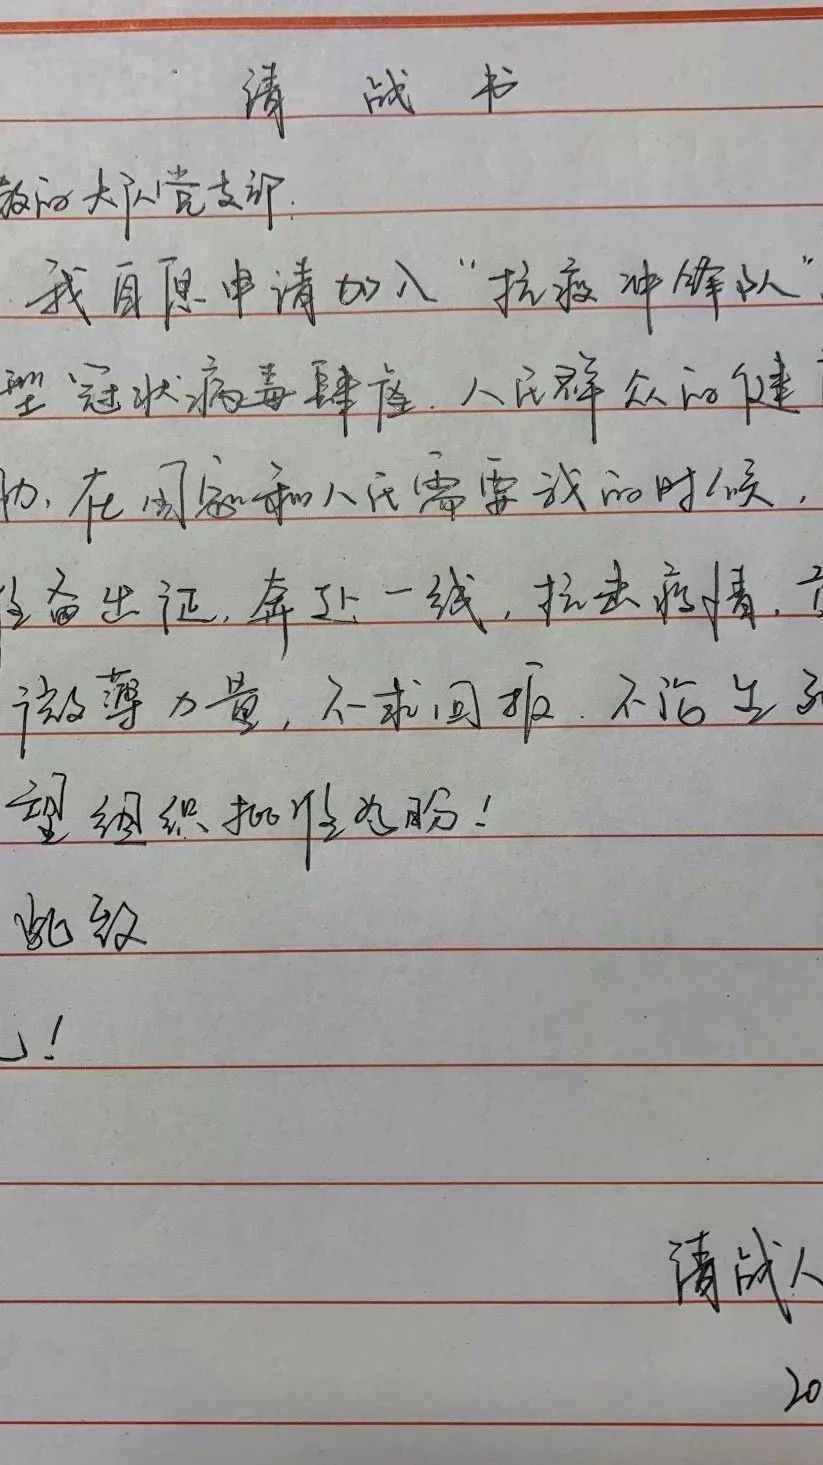 请战书
敬的大队党支部.
我自愿申请加入“抗疫冲锋队”.
型冠状病毒肆虐.人民群众的健
胁.在国家和人民需要我的时候,
准备出征,奔赴一线,抗击疫情,
微薄力量,不求回报.不论生死
望组织批准为盼!
此致
礼!
请战人
20